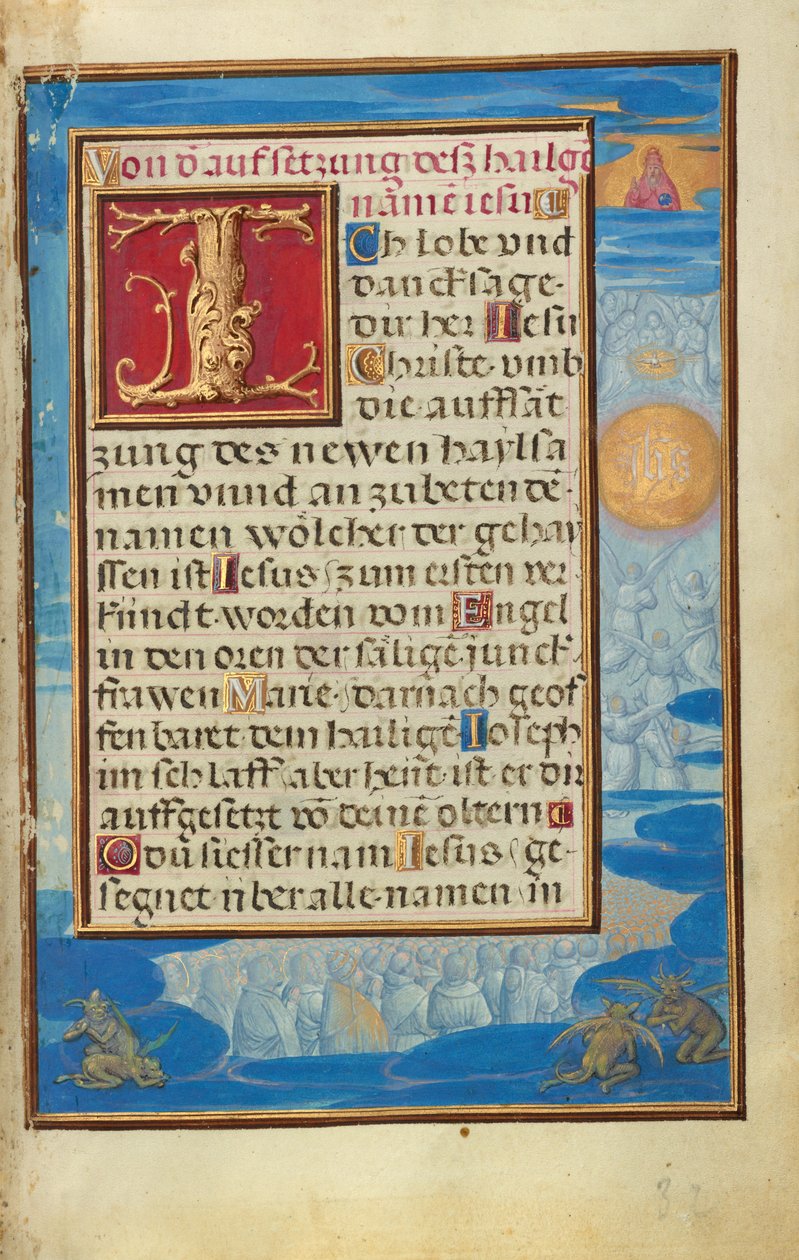 Von d̄ aufsetzung desz hailgē
namē iesu C
I Ch lobe vnd
dancksage-
dir her Iesu
Christe. vmb
die auffsät
zung des newen haylsa
men vnnd anzubetendē.
namen wölcher der gehay
ssen ist Iesus/zum ersten ver
kündt.worden vom Engel
in den oren der säligē.junck
frawen Marie/darnach geof
fenbaret dem hailigē Ioseph
im schlaff/aber heüt.ist er dir
auffgesetzt vō deinē öltern C
O dü siesser nam Iesus/ge-
segnet über alle.namen/in
jhs
32